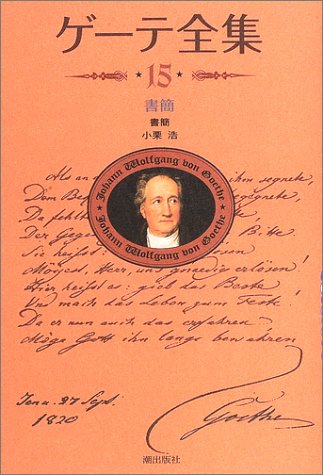 ゲーテ全集
15
書簡
書簡
小栗 浩
Johann Wolfgang von Goethe
Johann Wolfgang von Goethe
Als an ihm segnete,
Dem
Da fehlte
Der Bitte
Sie heisset:
Möges, Herr, uns gnaedig erlösen!
Hier heisst es: gieb das Beste
Und mach das Leben zum Feste,
Da er nun auch das erfahren,
Möge Gott ihn lange bewahren
Jena. 27 Sept.
1820
Goethe
潮出版社